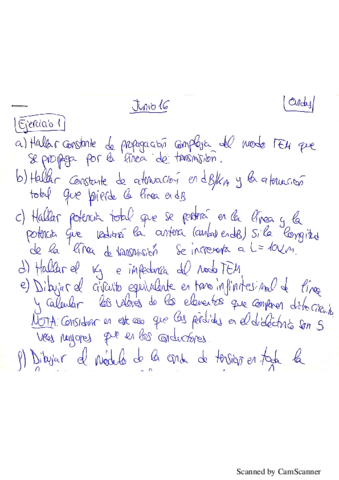 Junio 16
Ondas
Ejercicio 1
a) Hallar constante de propagación compleja del modo TEM que
se propaga por la línea de transmisión.
b) Hallar constante de atenuación en dB/km y la atenuación
total que pierde la línea en dB
c) Hallar potencia total que se perderá en la línea y la
potencia que radiará la antena (ambas en dB) si la longitud
de la línea de transmisión se incrementa a L = 10km.
d) Hallar el Kg e impedancia del modo TEM
e) Dibujar el circuito equivalente en tramo infinitesimal de línea
y calcular los valores de los elementos que componen dicho circuito
NOTA: Considerar en este caso que las pérdidas en el dieléctrico son 5
veces mayores que en los conductores.
f) Dibujar el módulo de la onda de tensión en toda la
Scanned by CamScanner